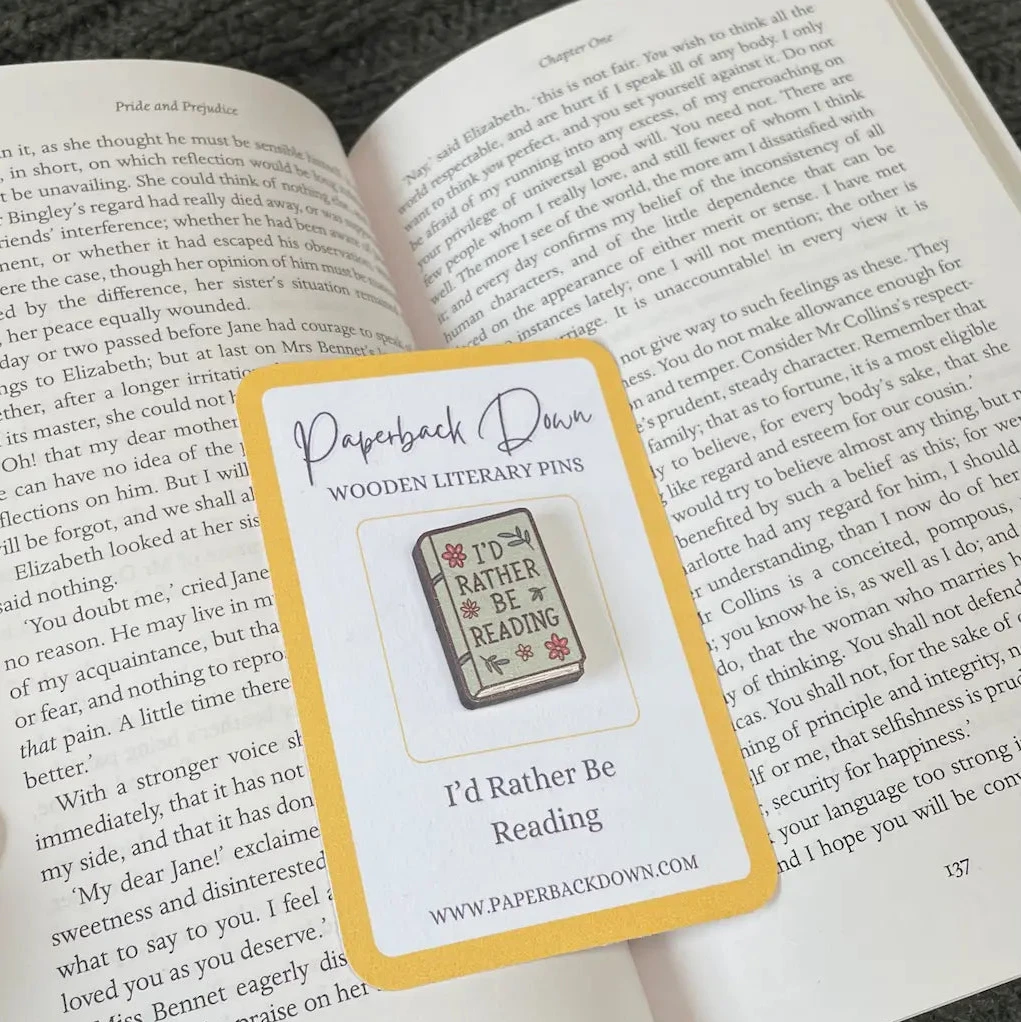 Pride and Prejudice
n it, as she thought he must be sensible
, in short, on which reflection would be long
t be unavailing. She could think of nothing else
r Bingley's regard had really died away, or was
riends' interference; whether he had been aware of
ment, or whether it had escaped his observation
ere the case, though her opinion of him must be
ed by the difference, her sister's situation remained
, her peace equally wounded.
day or two passed before Jane had courage to speak
ngs to Elizabeth; but at last on Mrs Bennet's
ther, after a longer irritation
its master, she could not h
Oh! that my dear mother
e can have no idea of the p
flections on him. But I will
ill be forgot, and we shall al
Elizabeth looked at her sis
said nothing.
'You doubt me,' cried Jane
no reason. He may live in m
of my acquaintance, but tha
or fear, and nothing to repro
that pain. A little time there
better.'
With a stronger voice sh
immediately, that it has not
my side, and that it has don
'My dear Jane!' exclaime
sweetness and disinterested
what to say to you. I feel a
loved you as you deserve.'
Miss Bennet eagerly dis
praise on her
Chapter One
'Nay,' said Elizabeth, 'this is not fair. You wish to think all the
world respectable, and are hurt if I speak ill of any body. I only
want to think you perfect, and you set yourself against it. Do not
be afraid of my running into any excess, of my encroaching on
your privilege of universal good will. You need not. There are
few people whom I really love, and still fewer of whom I think
well. The more I see of the world, the more am I dissatisfied with
it; and every day confirms my belief of the inconsistency of all
human characters, and of the little dependence that can be
placed on the appearance of either merit or sense. I have met
instances lately; one I will not mention; the other is
rriage. It is unaccountable! in every view it is
not give way to such feelings as these. They
ness. You do not make allowance enough for
n and temper. Consider Mr Collins's respect-
e's prudent, steady character. Remember that
family; that as to fortune, it is a most eligible
ly to believe, for every body's sake, that she
g like regard and esteem for our cousin.'
would try to believe almost any thing, but n
benefited by such a belief as this; for wer
arlotte had any regard for him, I should
r understanding, than I now do of her
Mr Collins is a conceited, pompous,
; you know he is, as well as I do; and
do, that the woman who marries h
y of thinking. You shall not defend
cas. You shall not, for the sake of o
ning of principle and integrity, n
lf or me, that selfishness is prud
, security for happiness.'
your language too strong i
nd I hope you will be conv
137
Paperback Down
WOODEN LITERARY PINS
I'D
RATHER
BE
READING
I'd Rather Be
Reading
WWW.PAPERBACKDOWN.COM